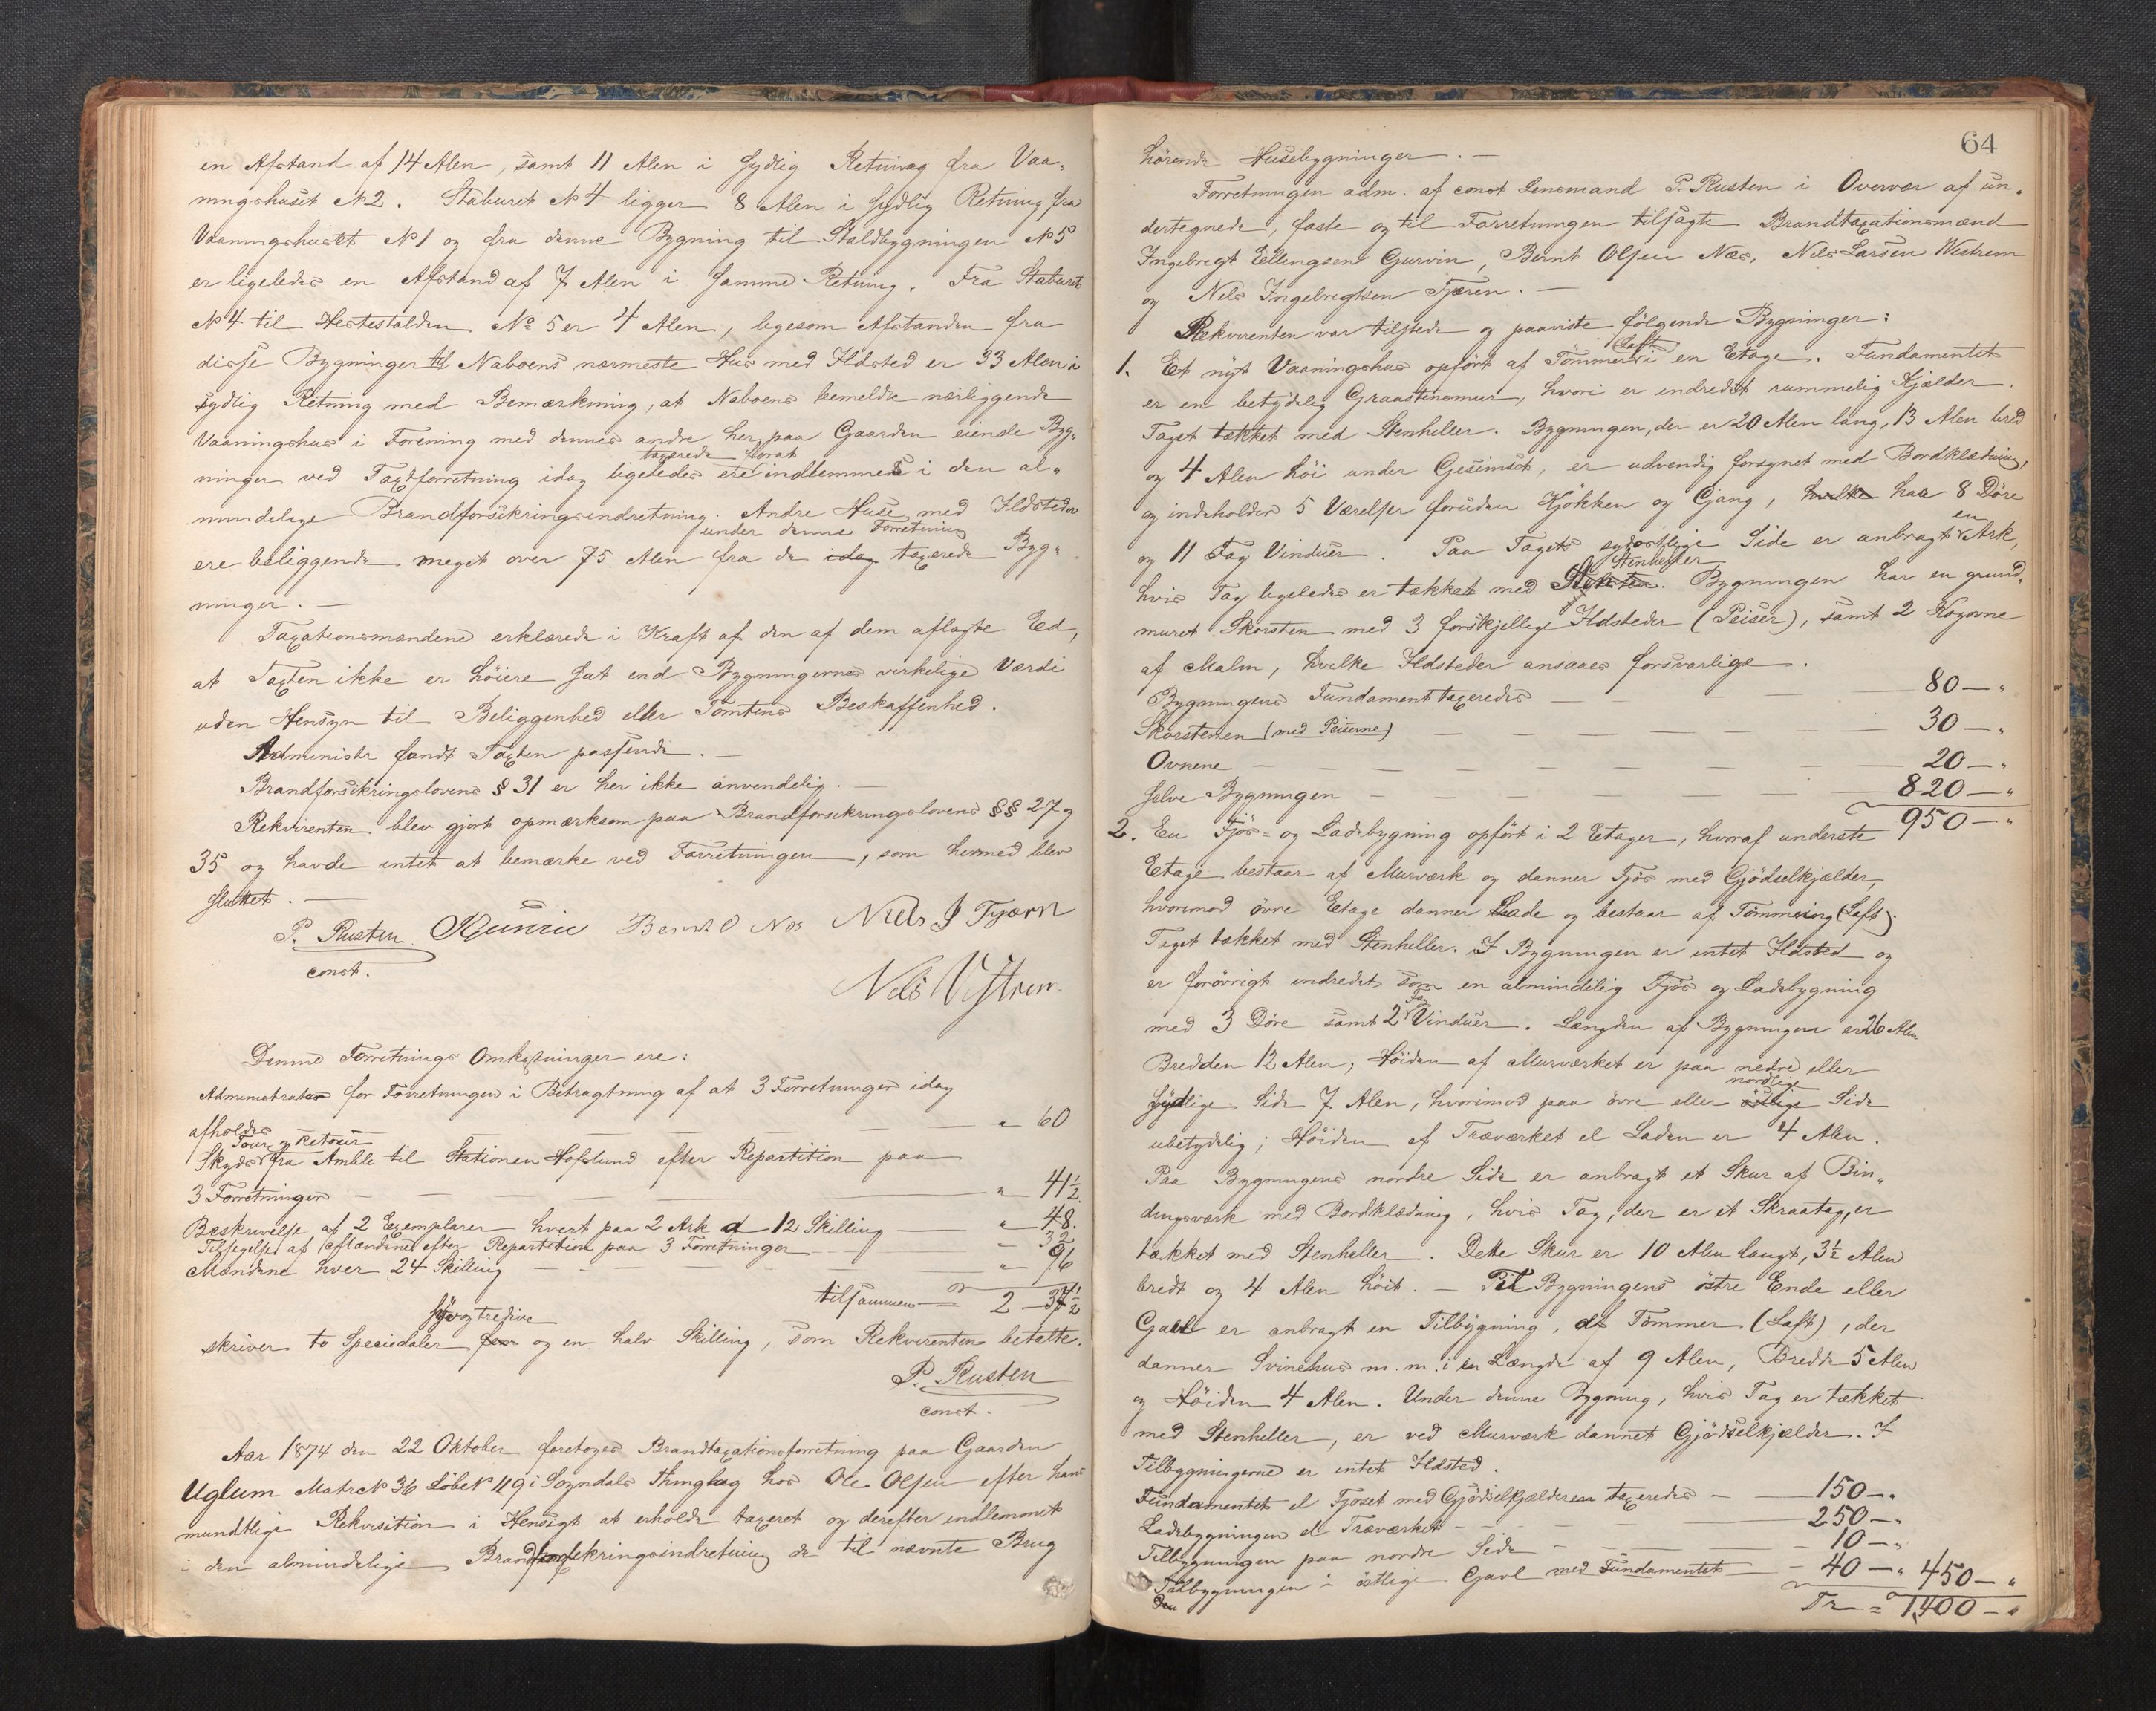 en Afstand af 14 Alen, samt 11 Alen i sydlig Retning fra Vaa-
ningshuset No 2. Staburet No 4 ligger 8 Alen i sydlig Retning fra
Vaaningshuset No 1 og fra denne Bygning til Staldbygningen No 5
er ligeledes en Afstand af 7 Alen i samme Retning. Fra Staburet
No 4 til Hestestalden No 5 er 4 Alen, ligesom Afstanden fra
disse Bygninger til Naboens nærmeste Hus med Ildsted er 33 Alen i
sydlig Retning med Bemærkning, at Naboens bemeldte nærliggende
Vaaningshus i Forening med dennes andre her paa Gaarden eiende Byg-
taxerede forat
ninger ved Taxtforretning idag ligeledes ere indlemmes i den al-
mindelige Brandforsikringsindretning. Andre Huse med Ildsteder
under denne Forretning
ere beliggende meget over 75 Alen fra de idag taxerede Byg-
ninger. —
Taxationsmændene erklærede i Kraft af den af dem aflagte Ed,
at Taxten ikke er höiere sat end Bygningernes virkelige Værdi
uden Hensyn til Beliggenhed eller Tomtens Beskaffenhed.
Administr fandt Taxten passende. —
Brandforsikringslovens § 31 er her ikke anvendelig. —
Rekvirenten blev gjort opmærksom paa Brandforsikringslovens §§ 27 og
35 og havde intet at bemærke ved Forretningen, som hermed blev
sluttet. —
P. Rusten Bernt O Næs Niels J Fjærn
const.
Nils Vestrem
Denne Forretnings Omkostninger ere:
Administrator for Forretningen i Betragtning af at 3 Forretninger idag
afholdes — — — " 60
Tour og retour
Skyds fra Amble til Stationen Hofslund efter Repartition paa
3 Forretninger — — — " 41½
Beskrivelse af 2 Exemplarer hvert paa 2 Ark a 12 Skilling " 48.
Tilsigelse af Mændene efter Repartition paa 3 Forretninger — — 32
Mændene hver 24 Skilling — — — " 96
tilsammen = 2 — 37½
syvogtredive
skriver to Speciedaler og en halv Skilling, som Rekvirenten betalte.
P. Rusten
const.
Aar 1874 den 22 Oktober foretoges Brandtaxationsforretning paa Gaarden
Uglum Matr No 36 Löbe No 119 i Sogndals Thinglag hos Ole Olsen efter hans
mundtlige Rekvisition i Hensigt at erholde taxeret og derefter indlemmet
i den almindelige Brandforsikringsindretning de til nævnte Brug
64
hörende Husebygninger. —
Forretningen adm. af const Lensmand P. Rusten i Overvær af un-
dertegnede, faste og til Forretningen tilsagte Brandtaxationsmænd
Ingebrigt Ellingsen Gurvin, Bernt Olsen Næs, Nils Larsen Westrem
og Nels Ingebrigtsen Fjæren. —
Rekvirenten var tilstede og paaviste fölgende Bygninger:
Laft
1. Et nyt Vaaningshus opfört af Tömmer i en Etage. Fundamentet
er en betydelig Graastensmur, hvori er indredet rummelig Kjælder.
Taget tækket med Stenheller. Bygningen, der er 20 Alen lang, 13 Alen bred
og 4 Alen höi under Gesimset, er udvendig forsynet med Bordklædning,
og indeholder 5 Værelser foruden Kjökken og Gang, hvilke har 8 Döre
en
og 11 Fag Vinduer. Paa Tagets sydostlige Side er anbragt Ark,
Stenheller
hvis Tag ligeledes er tækket med Bygningen har en grund-
muret Skorsten med 3 forskjellige Ildsteder (Peiser), samt 2 Kogovne
af Malm, hvilke Ildsteder ansaaes forsvarlige.
Bygningens Fundament taxeredes — — 80 — "
Skorstenen (med Peiserne) — — — 30 — "
Ovnene — — — 20 — "
selve Bygningen — — — 820 — "
950 — "
2. En Fjös- og Ladebygning opfört i 2 Etager, hvoraf underste
Etage bestaar af Murværk og danner Fjös med Gjödselkjælder,
hvorimod övre Etage danner Lade og bestaar af Tömmering (Laft).
Taget tækket med Stenheller. I Bygningen er intet Ildsted og
er forövrigt indredet som en almindelig Fjös og Ladebygning
Fag
med 3 Döre samt 2 Vinduer. Længden af Bygningen er 26 Alen
Bredden 12 Alen, Höiden af Murværket er paa nedre eller
nordlige
sydlige Side 7 Alen, hvorimod paa övre eller östlige Side
ubetydelig; Höiden af Træværket el Laden er 4 Alen.
Paa Bygningens nordre Side er anbragt et Skur af Bin-
dingsværk med Bordklædning, hvis Tag, der er et Skraatag, er
tækket med Stenheller. Dette Skur er 10 Alen langt, 3½ Alen
bredt og 4 Alen höit. — Til Bygningens östre Ende eller
Gavl er anbragt en Tilbygning, af Tömmer (Laft), der
danner Svinehus m. m. i en Længde af 9 Alen, Bredde 5 Alen
og Höiden 4 Alen. Under denne Bygning, hvis Tag er tækket
med Stenheller, er ved Murværk dannet Gjödselkjælder. I
Tilbygningerne er intet Ildsted.
Fundamentet el Fjöset med Gjödselkjælderen taxeredes — 150 — "
Ladebygningen el Træværket — — 250 — "
Tilbygningen paa nordre Side — — 10 — "
Tilbygningen i östlige Gavl med Fundamentet — 40 — " 450 — "
Den
Tr = 1,400 — "